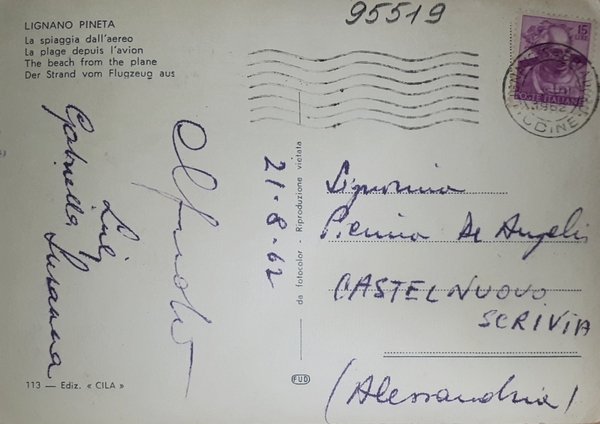 95519
LIGNANO PINETA
La spiaggia dall'aereo
La plage depuis l'avion
The beach from the plane
Der Strand vom Flugzeug aus
15
LIRE
POSTE ITALIANE
UDINE
Alfredo
Luig
Gabriella Susanna
21-8-62
da fotocolor - Riproduzione vietata
Signorina
Pierina De Angelis
CASTELNUOVO
SCRIVIA
(Alessandria)
113 — Ediz. « CILA »
FUD